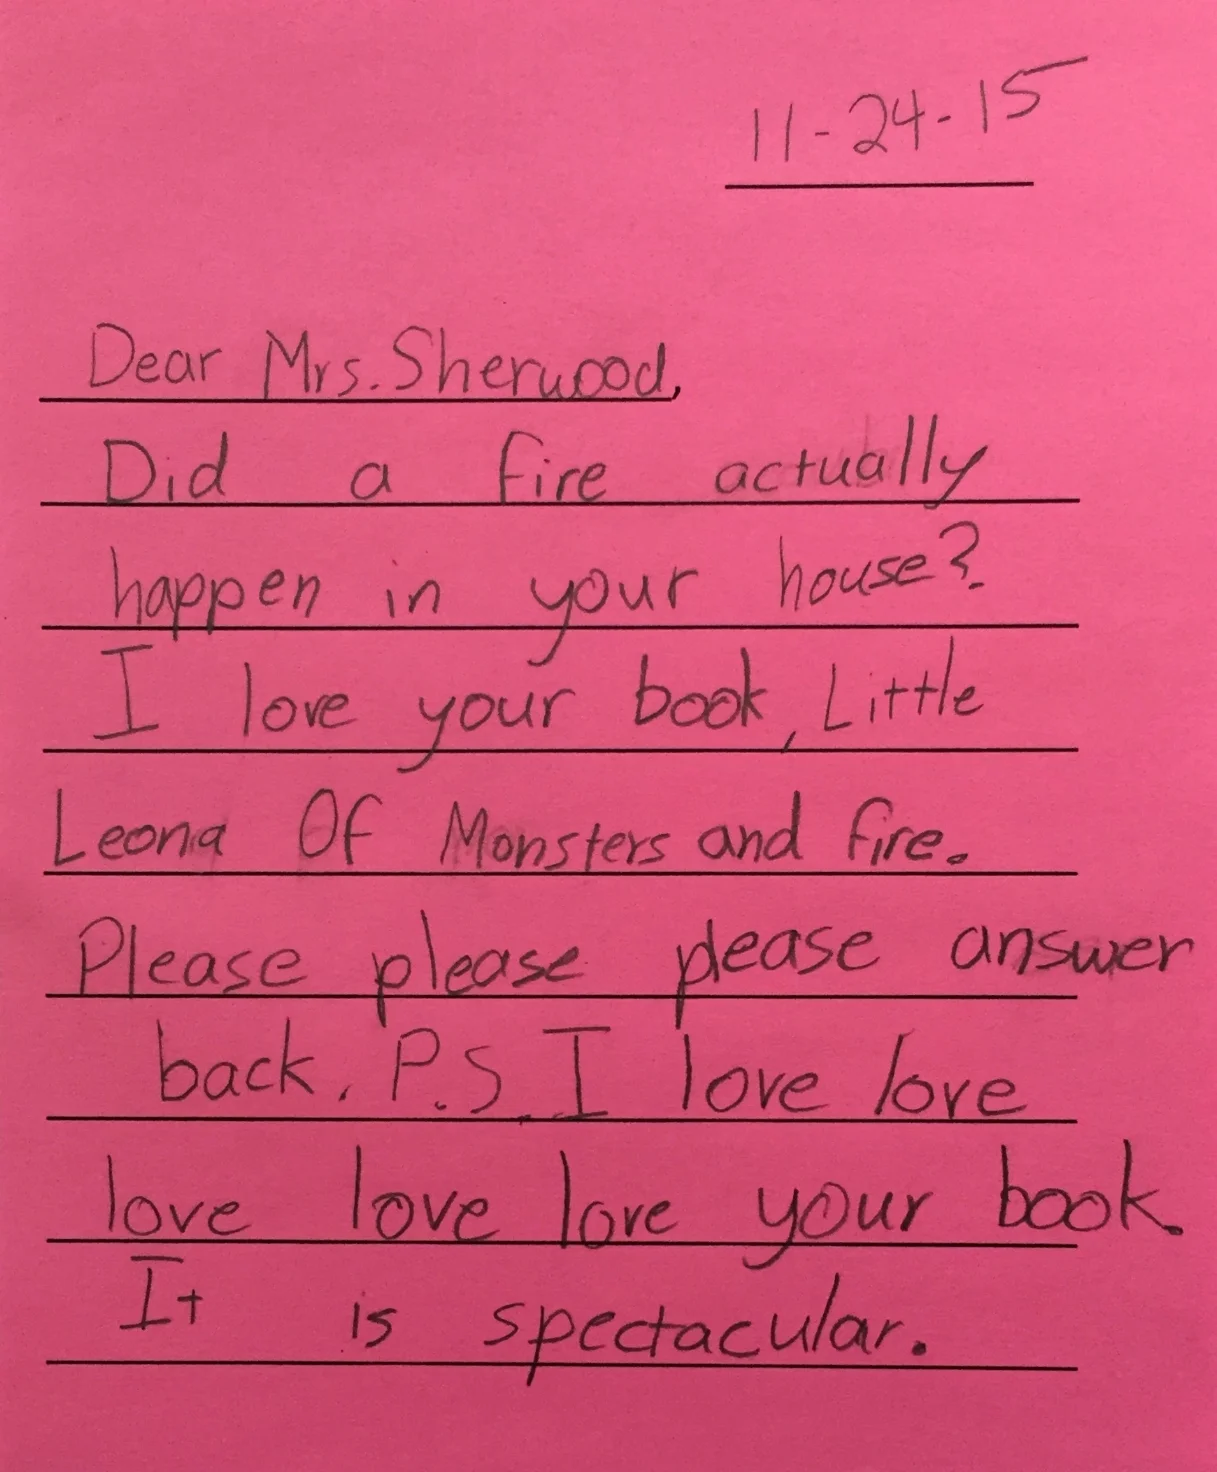 11-24-15
Dear Mrs. Sherwood,
Did a fire actually
happen in your house?
I love your book, Little
Leona Of Monsters and fire.
Please please please answer
back. P.S. I love love
love love love your book.
It is spectacular.